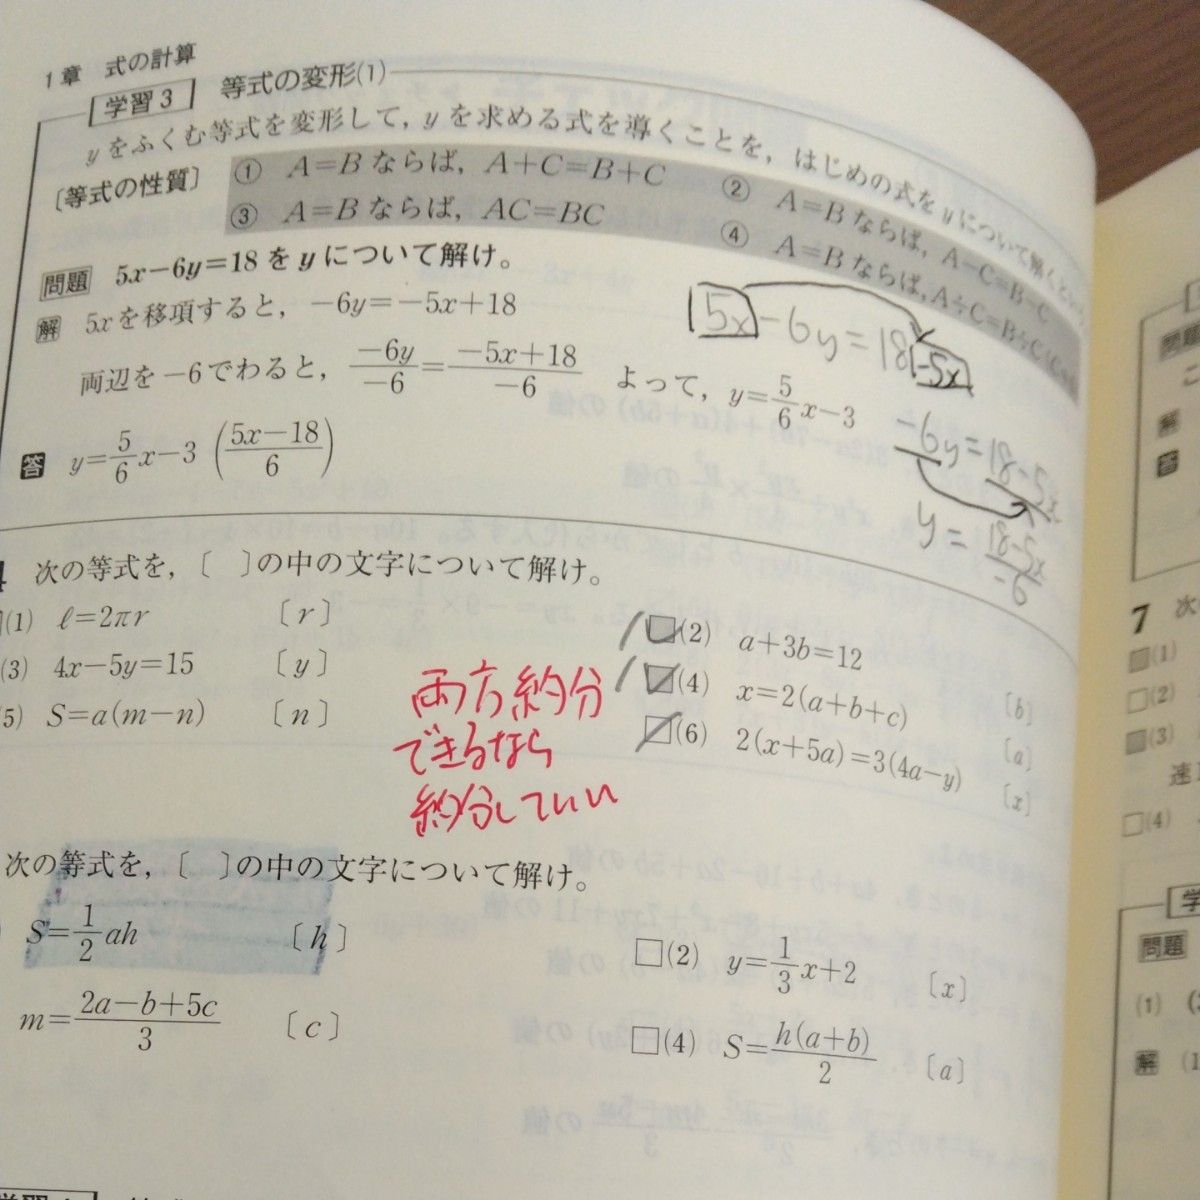 1章 式の計算
学習3 等式の変形(1)
yをふくむ等式を変形して,yを求める式を導くことを,はじめの式をyについて解くという
〔等式の性質〕 ① A=Bならば, A+C=B+C ② A=Bならば, A-C=B-C
③ A=Bならば, AC=BC ④ A=Bならば, A÷C=B÷C
問題 5x-6y=18をyについて解け。
解 5xを移項すると, -6y=-5x+18
両辺を-6でわると, \frac{-6y}{-6}=\frac{-5x+18}{-6} よって, y=\frac{5}{6}x-3
答 y=\frac{5}{6}x-3 (\frac{5x-18}{6})
5x-6y=18-5x
-6y=18-5x
y=\frac{18-5x}{-6}
次の等式を,〔 〕の中の文字について解け。
(1) ℓ=2πr 〔r〕
(2) a+3b=12 〔b〕
(3) 4x-5y=15 〔y〕
(4) x=2(a+b+c) 〔a〕
5) S=a(m-n) 〔n〕
(6) 2(x+5a)=3(4a-y) 〔x〕
両方約分
できるなら
約分していい
次の等式を,〔 〕の中の文字について解け。
S=\frac{1}{2}ah 〔h〕
(2) y=\frac{1}{3}x+2 〔x〕
m=\frac{2a-b+5c}{3} 〔c〕
(4) S=\frac{h(a+b)}{2} 〔a〕
7 次
(1)
(2)
(3)
速
(4)
学
問題
(1)
解 (1